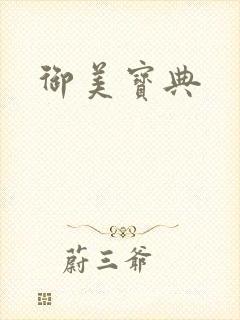 御美寶典
蔚三爺